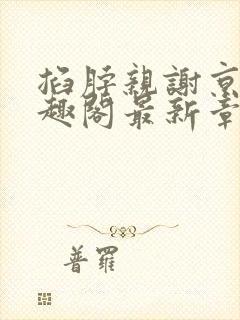 掐脖親謝京
趣閣最新章
普羅